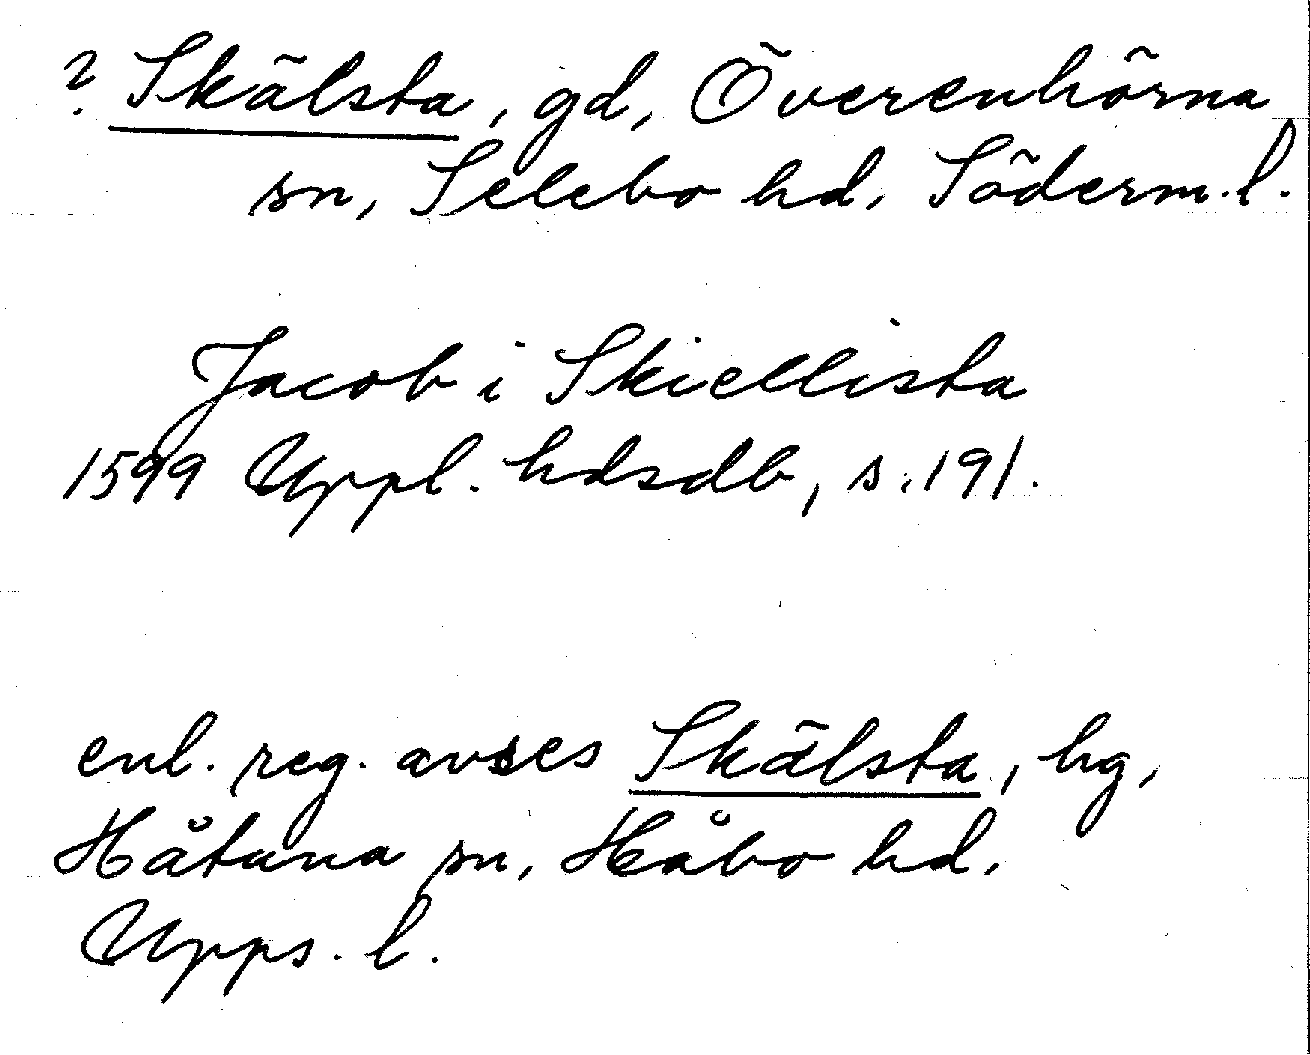 ? Skälsta, gd, Överenhörna
sn, Selebo hd, Söderm. l.
Jacob i Skiellista
1599 Uppl. hdsdb, s. 191.
enl. reg. avses Skälsta, hg,
Håtuna sn, Håbo hd.
Upps. l.